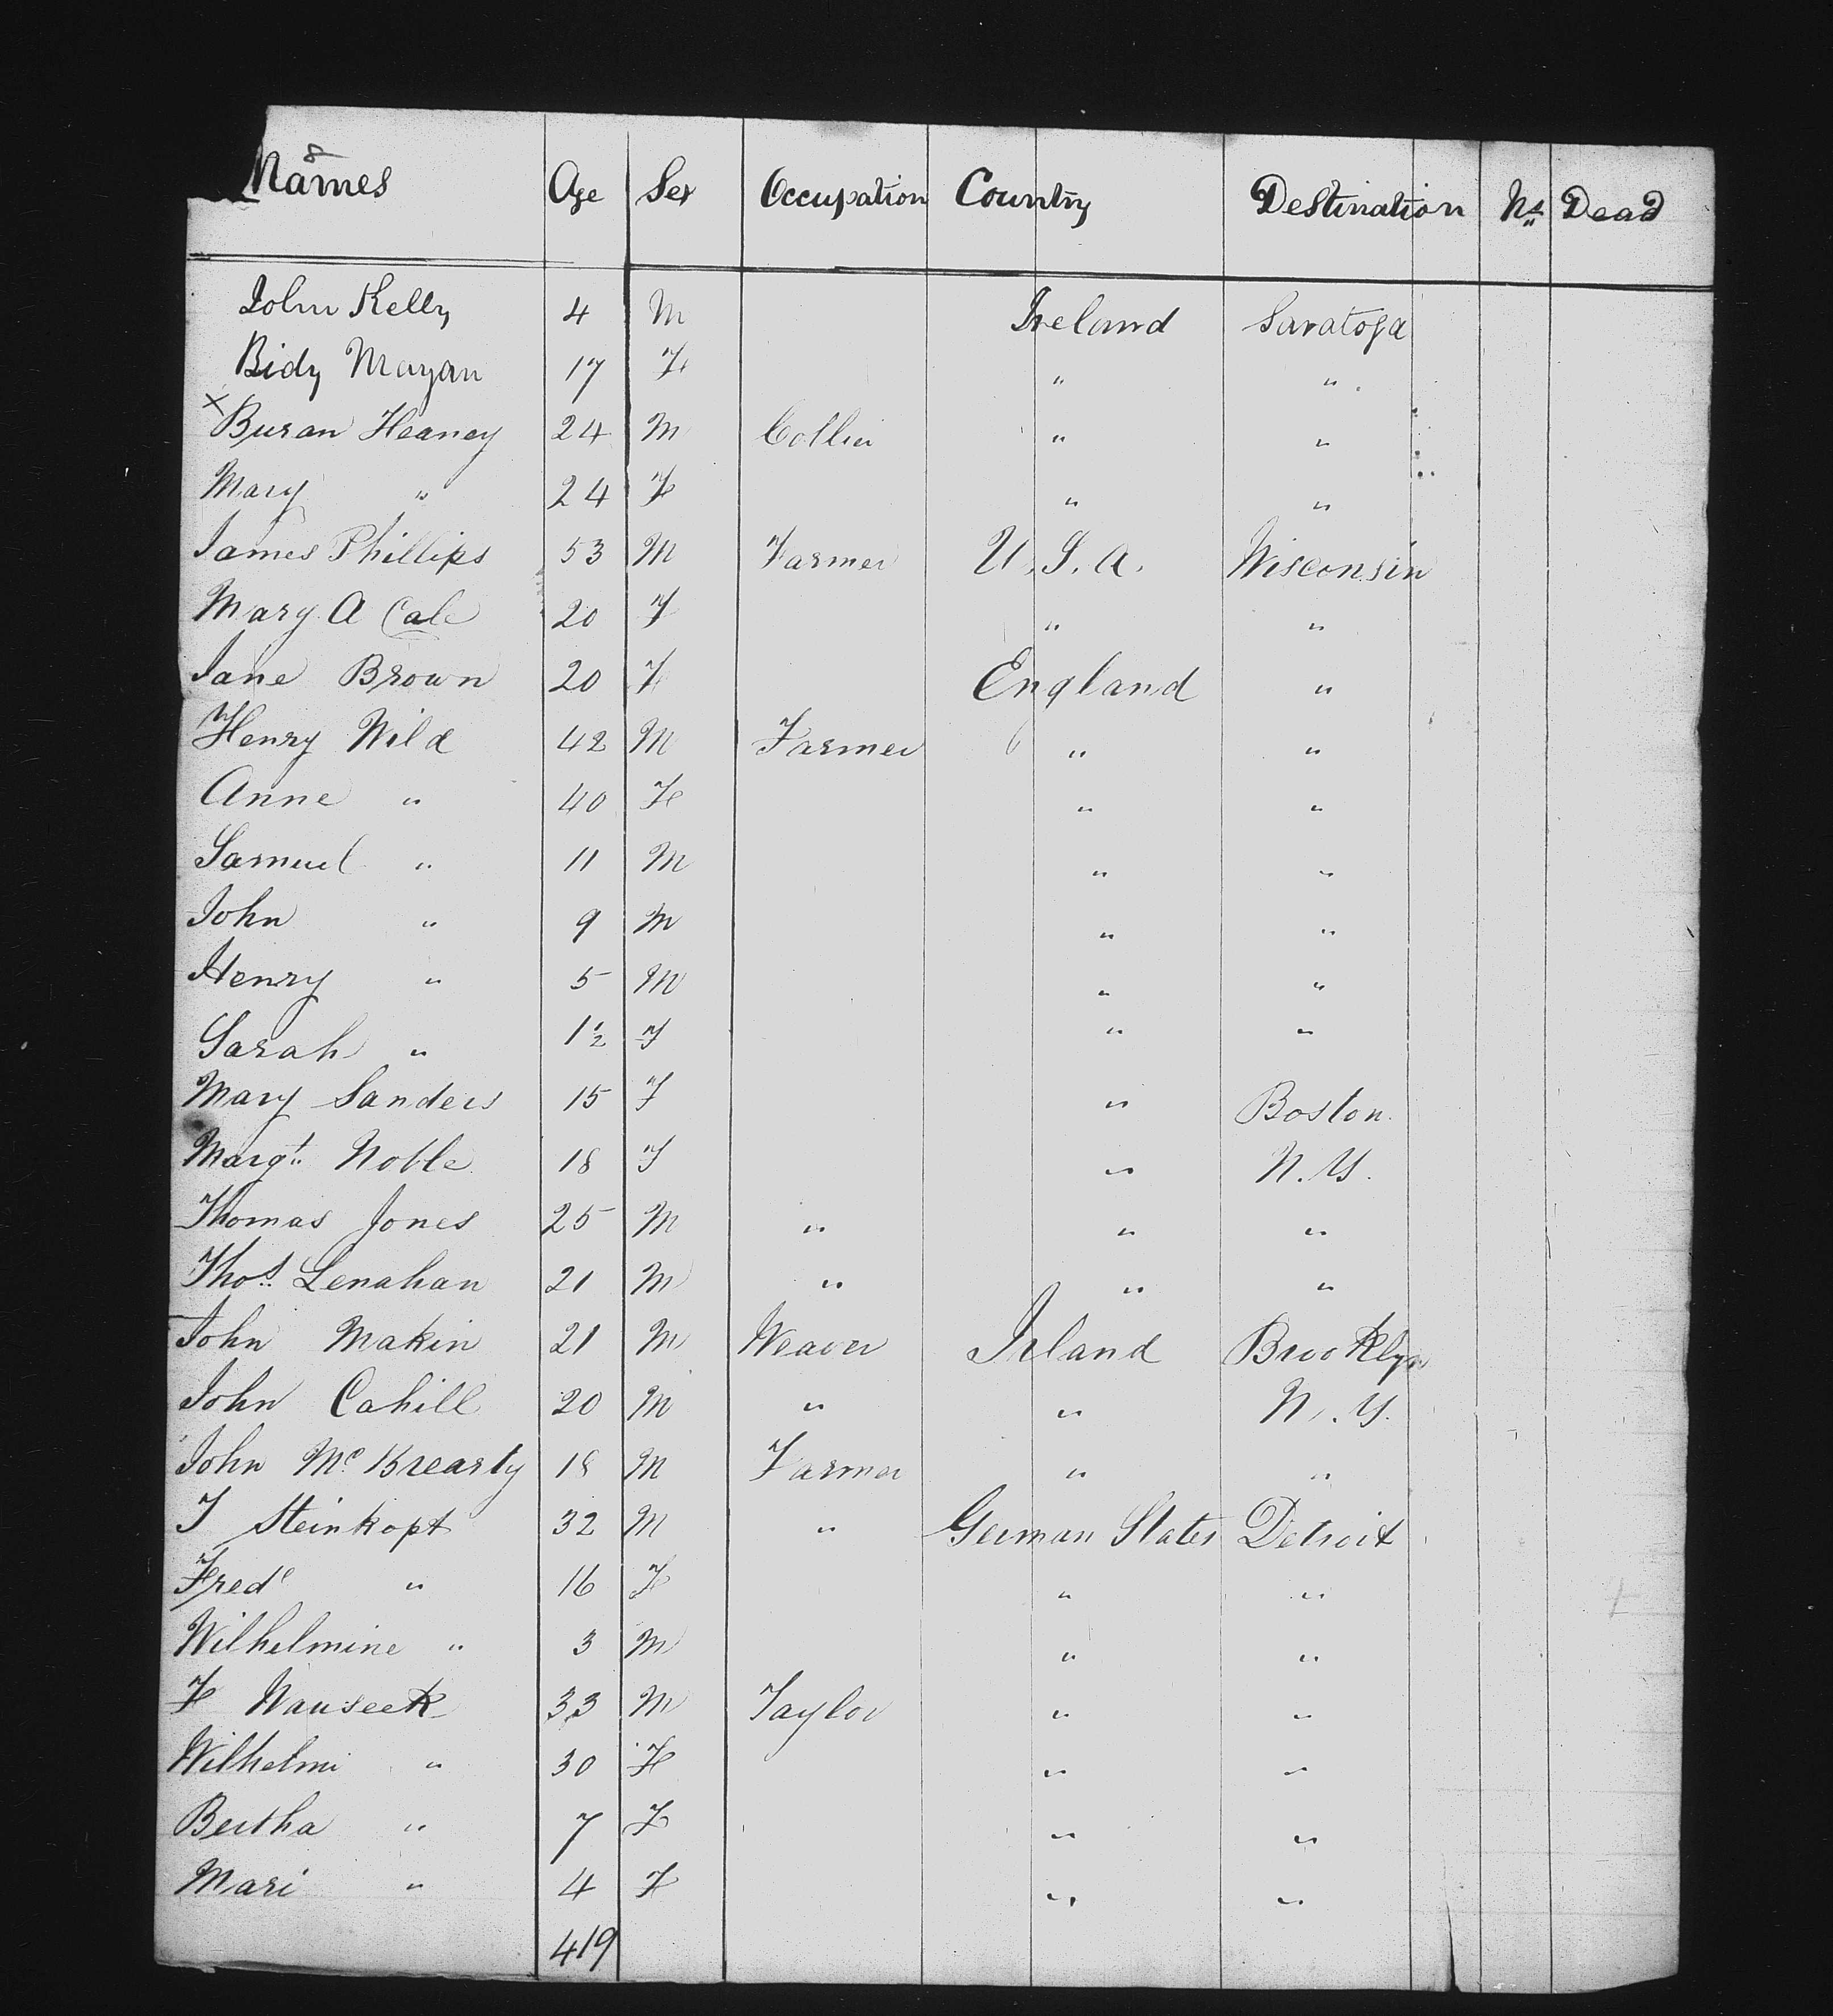 8
Names Age Sex Occupation Country Destination No Dead
John Kelly 4 M Ireland Saratoga
Bidy Mayan 17 F " "
x Buran Heaney 24 M Collier " "
Mary " 24 F " "
James Phillips 53 M Farmer U.S.A. Wisconsin
Mary A Cale 20 F " "
Jane Brown 20 F England "
Henry Wild 42 M Farmer " "
Anne " 40 F " "
Samuel " 11 M " "
John " 9 M " "
Henry " 5 M " "
Sarah " 1½ F " "
Mary Sanders 15 F " Boston.
Margt. Noble 18 F " N.Y.
Thomas Jones 25 M " " "
Thos. Lenahan 21 M " " "
John Makin 21 M Weaver Irland Brooklyn
John Cahill 20 M " " N.Y.
John Mc Brearty 18 M Farmer " "
J Steinkopt 32 M " German States Detroit
Frede " 16 F " "
Wilhelmine " 3 M " "
F Wauseek 33 M Taylor " "
Wilhelmi " 30 F " "
Bertha " 7 F " "
Mari " 4 F " "
419